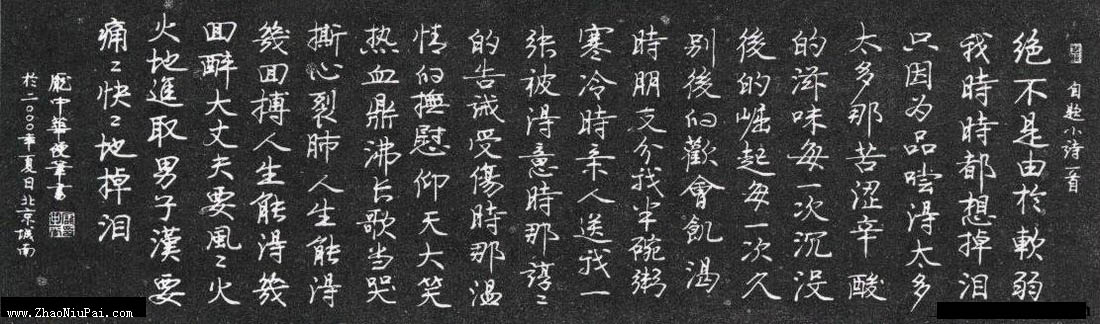 自题小诗一首
绝不是由於軟弱
我時時都想掉泪
只因为品嘗得太多
太多那苦涩辛酸
的滋味每一次沉没
後的崛起每一次久
别後的歡會飢渴
時朋友分我半碗粥
寒冷時亲人送我一
张被得意時那諄〻
的告诫受傷時那温
情的撫慰仰天大笑
热血鼎沸长歌当哭
撕心裂肺人生能得
幾回搏人生能得幾
回醉大丈夫要風〻火
火地進取男子漢要
痛〻快〻地掉泪
龐中華硬筆書
於二〇〇〇年夏日北京城南
www.ZhaoNiuPai.com